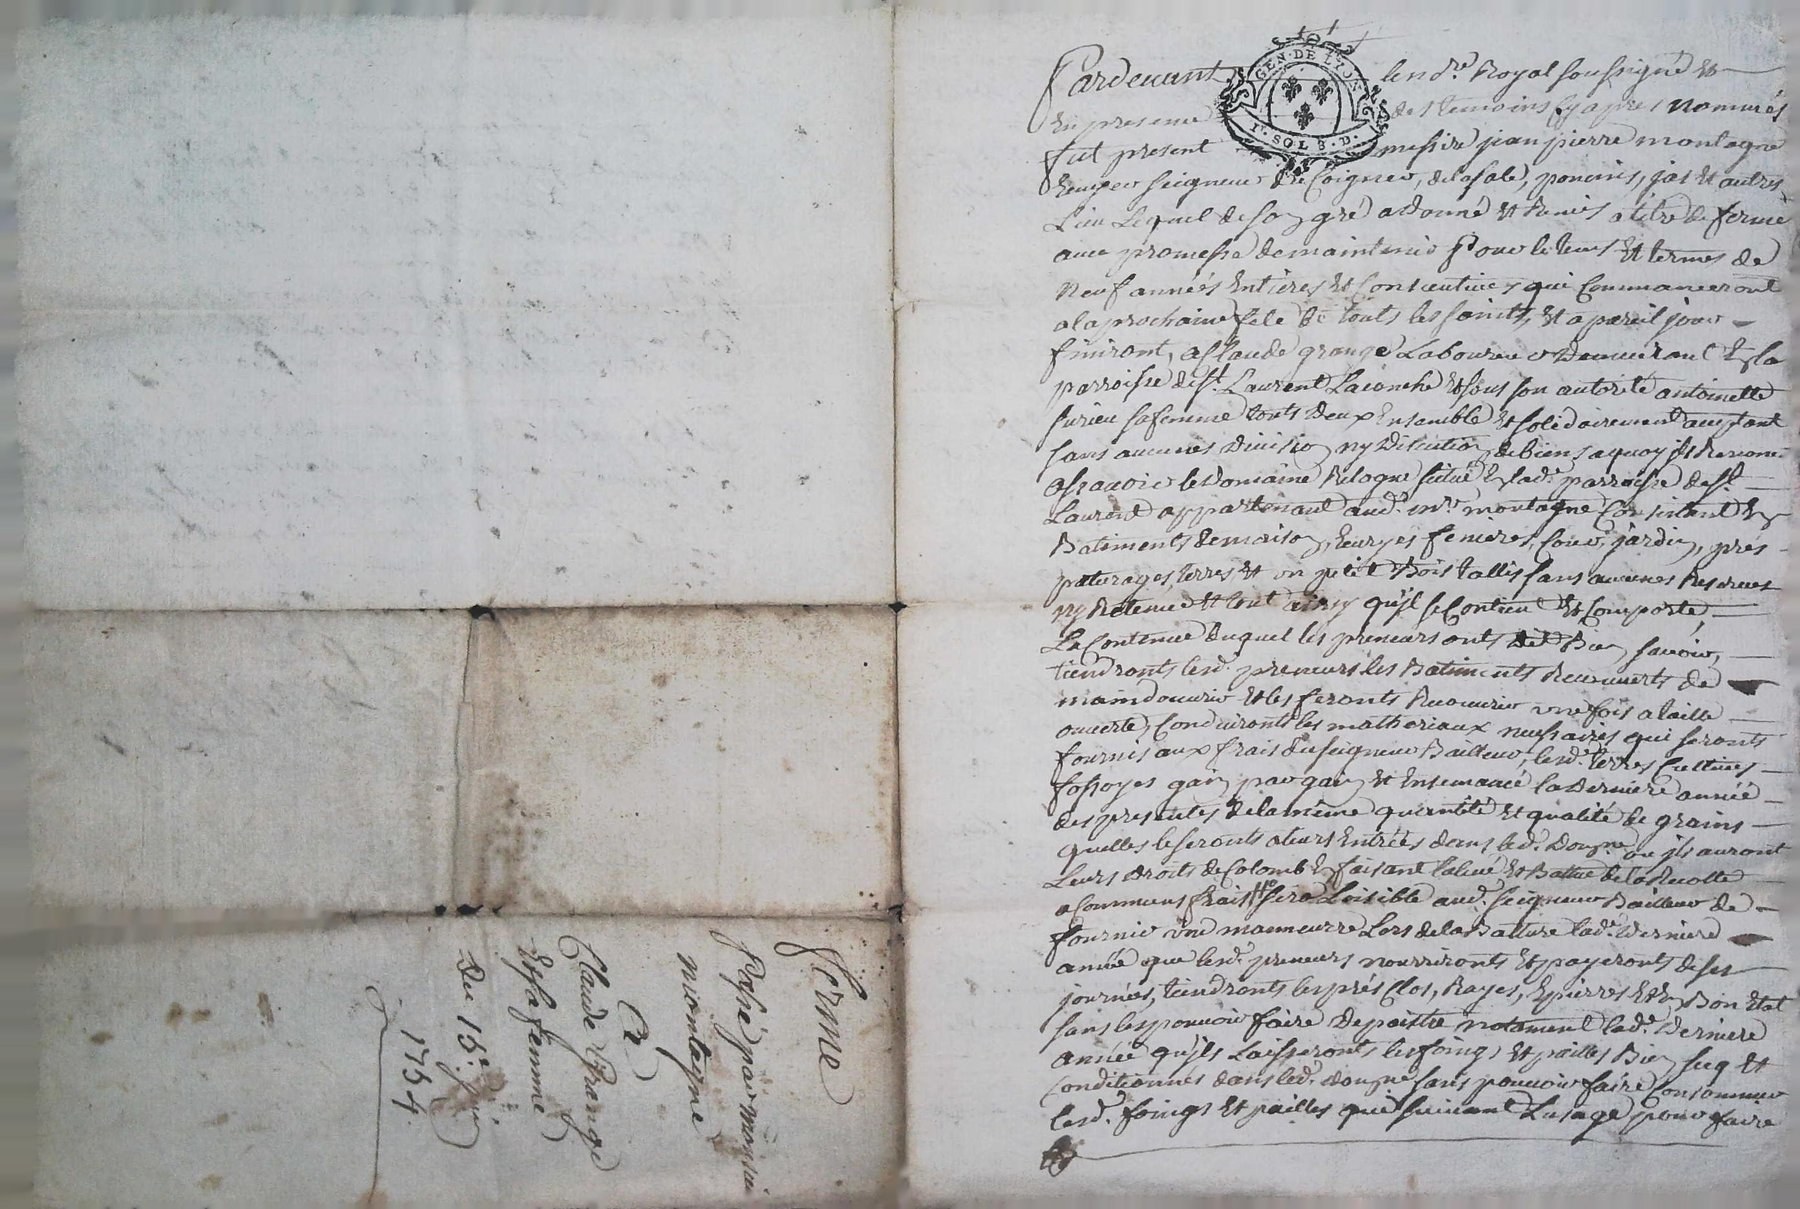 Pardevant le no.re Royal soussigné et
En presence des temoins cy apres nommés
fut present messire jean pierre montagne
Ecuyer seigneur de Coignet, de la sale, poncins, jas et autres
Lieu Lequel de son gré a donné et Remis a titre de ferme
avec promesse de maintenir pour le tems et termes de
Neuf années Entieres et Consecutives qui Commanceront
a la prochaine fete de touts les saints, et a pareil jour
finiront, a Claude grange Laboureur Demeurant En la
parroisse de st. Laurent Laconche et sous son autorité antoinette
sa femme touts deux Ensemble et solidairement acceptant
sans aucunes Division ny Discution de biens a quoy ils
ascavoir le Domaine situé En lad.e parroisse de st.
Laurent appartenant aud. mr. montagne Consistant En
Batiments de maison, Ecuryes fenieres, Cour, jardin, prés
paturages, terres et un petit Bois tallis sans aucunes Reserves
ny Retenue et tout ainsy qu'il se Contient et Comporte,
La Contenue duquel les preneurs onts dit Bien savoir,
tiendronts lesd. preneurs les Batiments Recouverts de
main douvrier et les feronts Recouvrir une fois a taille
ouverte, Conduironts les matheriaux necessaires qui seronts
fournis aux frais du seigneur Bailleur, lesd. terres Cultives
fossoyes gain par gain et Ensemancé la Derniere année
des presentes de la meme quantité et qualité de grains
quelles le seronts a leurs Entrées dans led. Dom.ne ou ils auront
Leurs droits de Colomb En faisant la levé et Battue de la Recolte
a Communs frais sera Loisible aud. seigneur Bailleur de
fournir une manneuvre Lors de la Batture lad.e Derniere
année que lesd. preneurs nourrironts et payeronts de ses
journées, tiendronts les prés Clos, Rayes, Epierres et En Bon Etat
sans les pouvoir faire Depaistre notament lad.e Derniere
année qu'ils Laisseronts les foings et pailles Bien secq et
Conditionnés dans led. dom.ne sans pouvoir faire Consommer
lesd. foings et pailles que suivant Lusage pour faire
ferme
Passé par monsieur
montagne
A
Claude Grange
Et sa femme
Du 15e
1754.
GEN. DE LYON
SOLS. D.